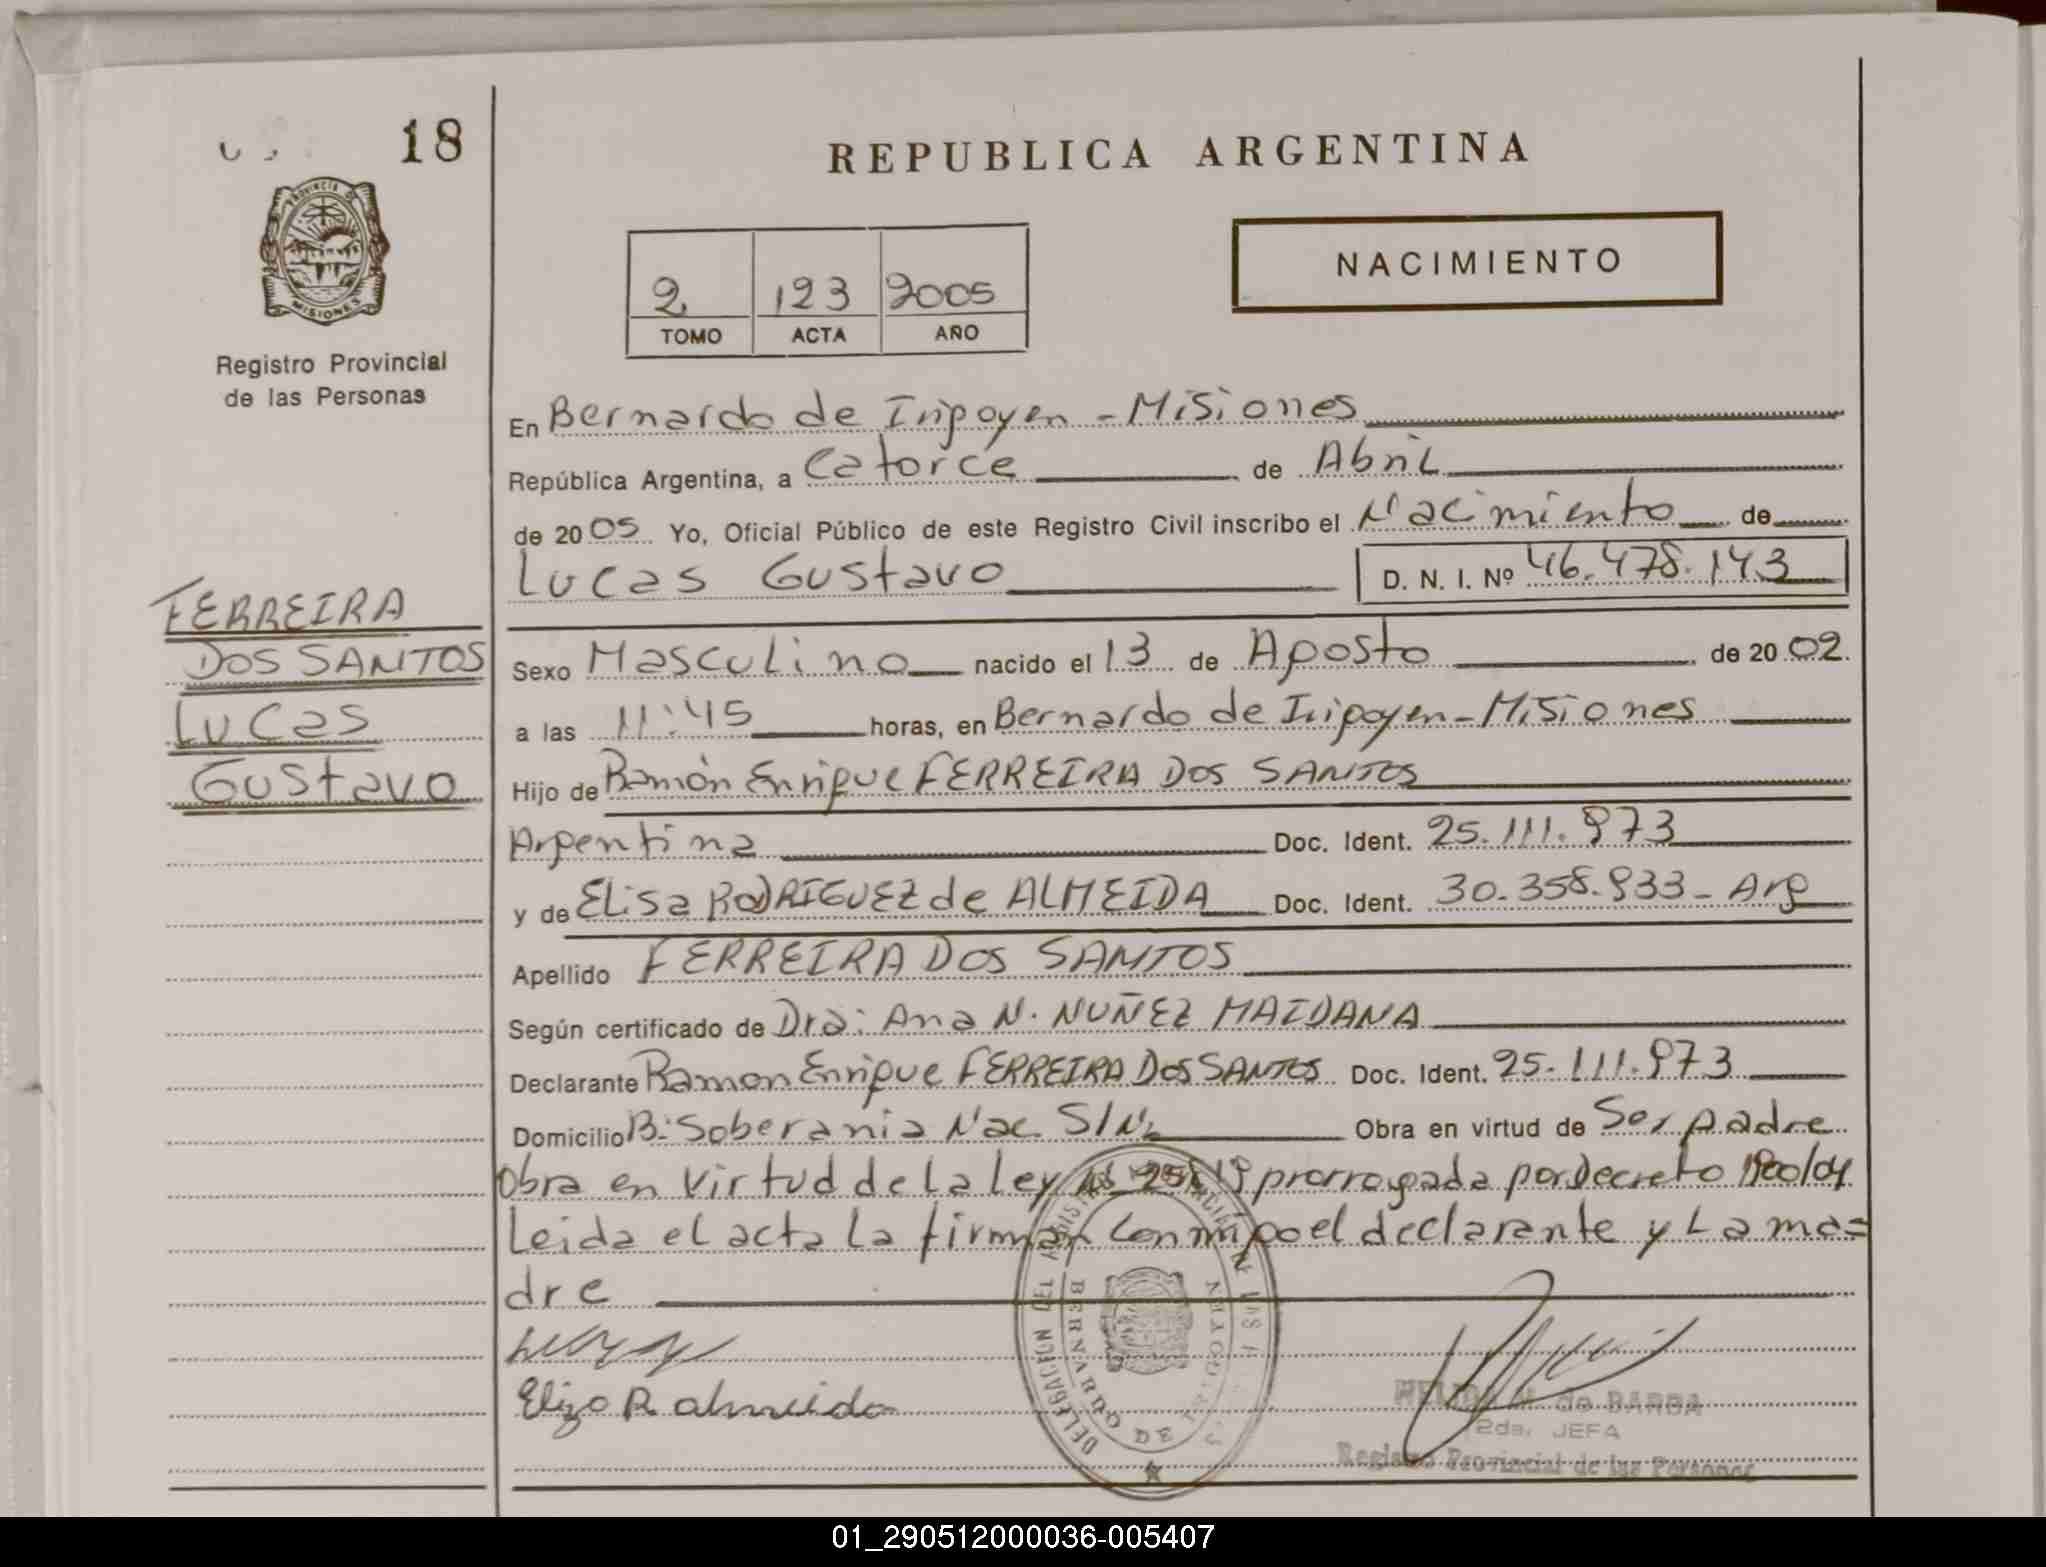 18
PROVINCIA DE
MISIONES
Registro Provincial
de las Personas
REPUBLICA ARGENTINA
2 123 2005
TOMO ACTA AÑO
NACIMIENTO
En Bernardo de Irigoyen - Misiones
República Argentina, a Catorce de Abril
de 2005 Yo, Oficial Público de este Registro Civil inscribo el Nacimiento de
Lucas Gustavo D. N. I. Nº 46.478.143
FERREIRA
DOS SANTOS
Lucas
Gustavo
Sexo Masculino nacido el 13 de Agosto de 2002
a las 11:45 horas, en Bernardo de Irigoyen - Misiones
Hijo de Ramón Enrique FERREIRA DOS SANTOS
Argentina Doc. Ident. 25.111.973
y de Elisa RODRIGUEZ de ALMEIDA Doc. Ident. 30.358.933 - Arg
Apellido FERREIRA DOS SANTOS
Según certificado de Dra: Ana N. NUÑEZ MAIDANA
Declarante Ramon Enrique FERREIRA DOS SANTOS Doc. Ident. 25.111.973
Domicilio B: Soberania Nac. S/N Obra en virtud de Ser padre
Obra en virtud de la ley prorrogada por Decreto
Leida el acta la firman conmigo el declarante y La ma=
dre
Eliza R. almeida
DELEGACION DEL REGISTRO
BERNARDO DE IRIGOYEN
MELIDA de BARBA
2da. JEFA
Registro Provincial de las Personas
01_290512000036-005407